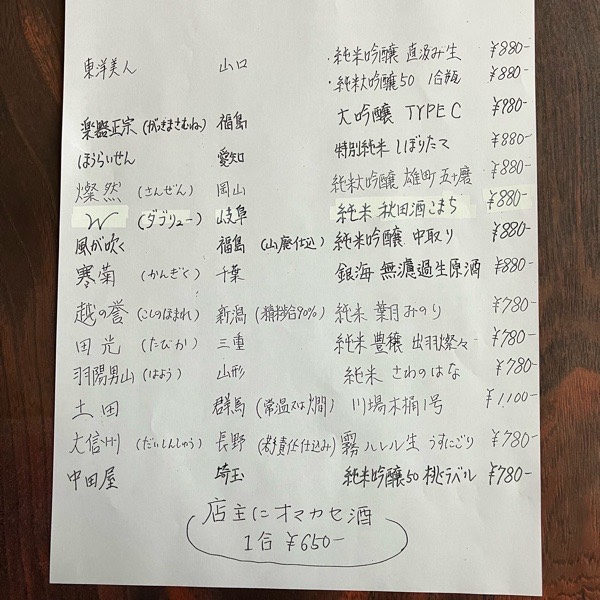 東洋美人 山口 ・純米吟醸 直汲み生 ¥880-
・純米大吟醸50 1合瓶 ¥880-
楽器正宗(がっきまさむね) 福島 大吟醸 TYPE C ¥880-
ほうらいせん 愛知 特別純米 しぼりたて ¥880-
燦然(さんぜん) 岡山 純米大吟醸 雄町 五十磨 ¥880-
W(ダブリュー) 岐阜 純米 秋田酒こまち ¥880-
風が吹く 福島(山廃仕込) 純米吟醸 中取り ¥880-
寒菊(かんぎく) 千葉 銀海 無濾過生原酒 ¥880-
越の誉(こしのほまれ) 新潟(精米歩合90%) 純米 葉月みのり ¥780-
田光(たびか) 三重 純米 豊穣 出羽燦々 ¥780-
羽陽男山(はよう) 山形 純米 さわのはな ¥780-
土田 群馬(常温又は燗) 川場木桶1号 ¥1,100-
大信州(だいしんしゅう) 長野 仕込み) 霧ハレル生 うすにごり ¥780-
中田屋 埼玉 純米吟醸50 桃ラベル ¥780-
店主にオマカセ酒
1合 ¥650-